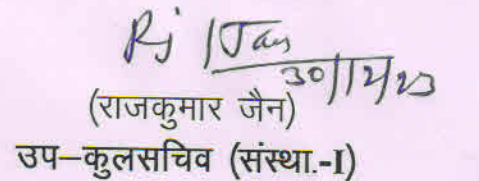 30/12/23
(राजकुमार जैन)
उप–कुलसचिव (संस्था.-I)